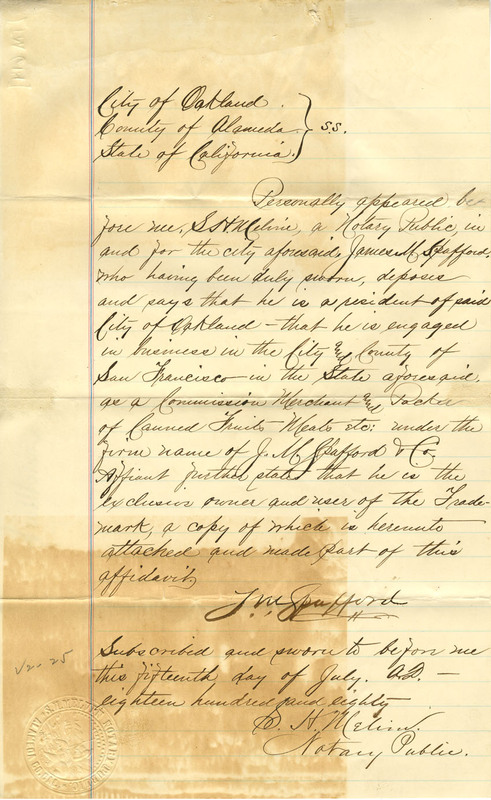 City of Oakland.
County of Alameda. } S.S.
State of California.
Personally appeared be
fore me, S H Melvin, a Notary Public, in
and for the city aforesaid, James M. Spafford,
who having been duly sworn, deposes
and says that he is a resident of said
City of Oakland - that he is engaged
in business in the City and County of
San Francisco - in the State aforesaid,
as a Commission Merchant and Packer
of Canned Fruits Meats etc: under the
firm name of J. M. Spafford & Co.
Affiant further states that he is the
exclusive owner and user of the Trade-
mark, a copy of which is hereunto
attached and made part of this
affidavit
J M Spafford
Subscribed and sworn to before me
this fifteenth day of July. A.D. -
eighteen hundred and eighty
S. H. Melvin.
Notary Public.